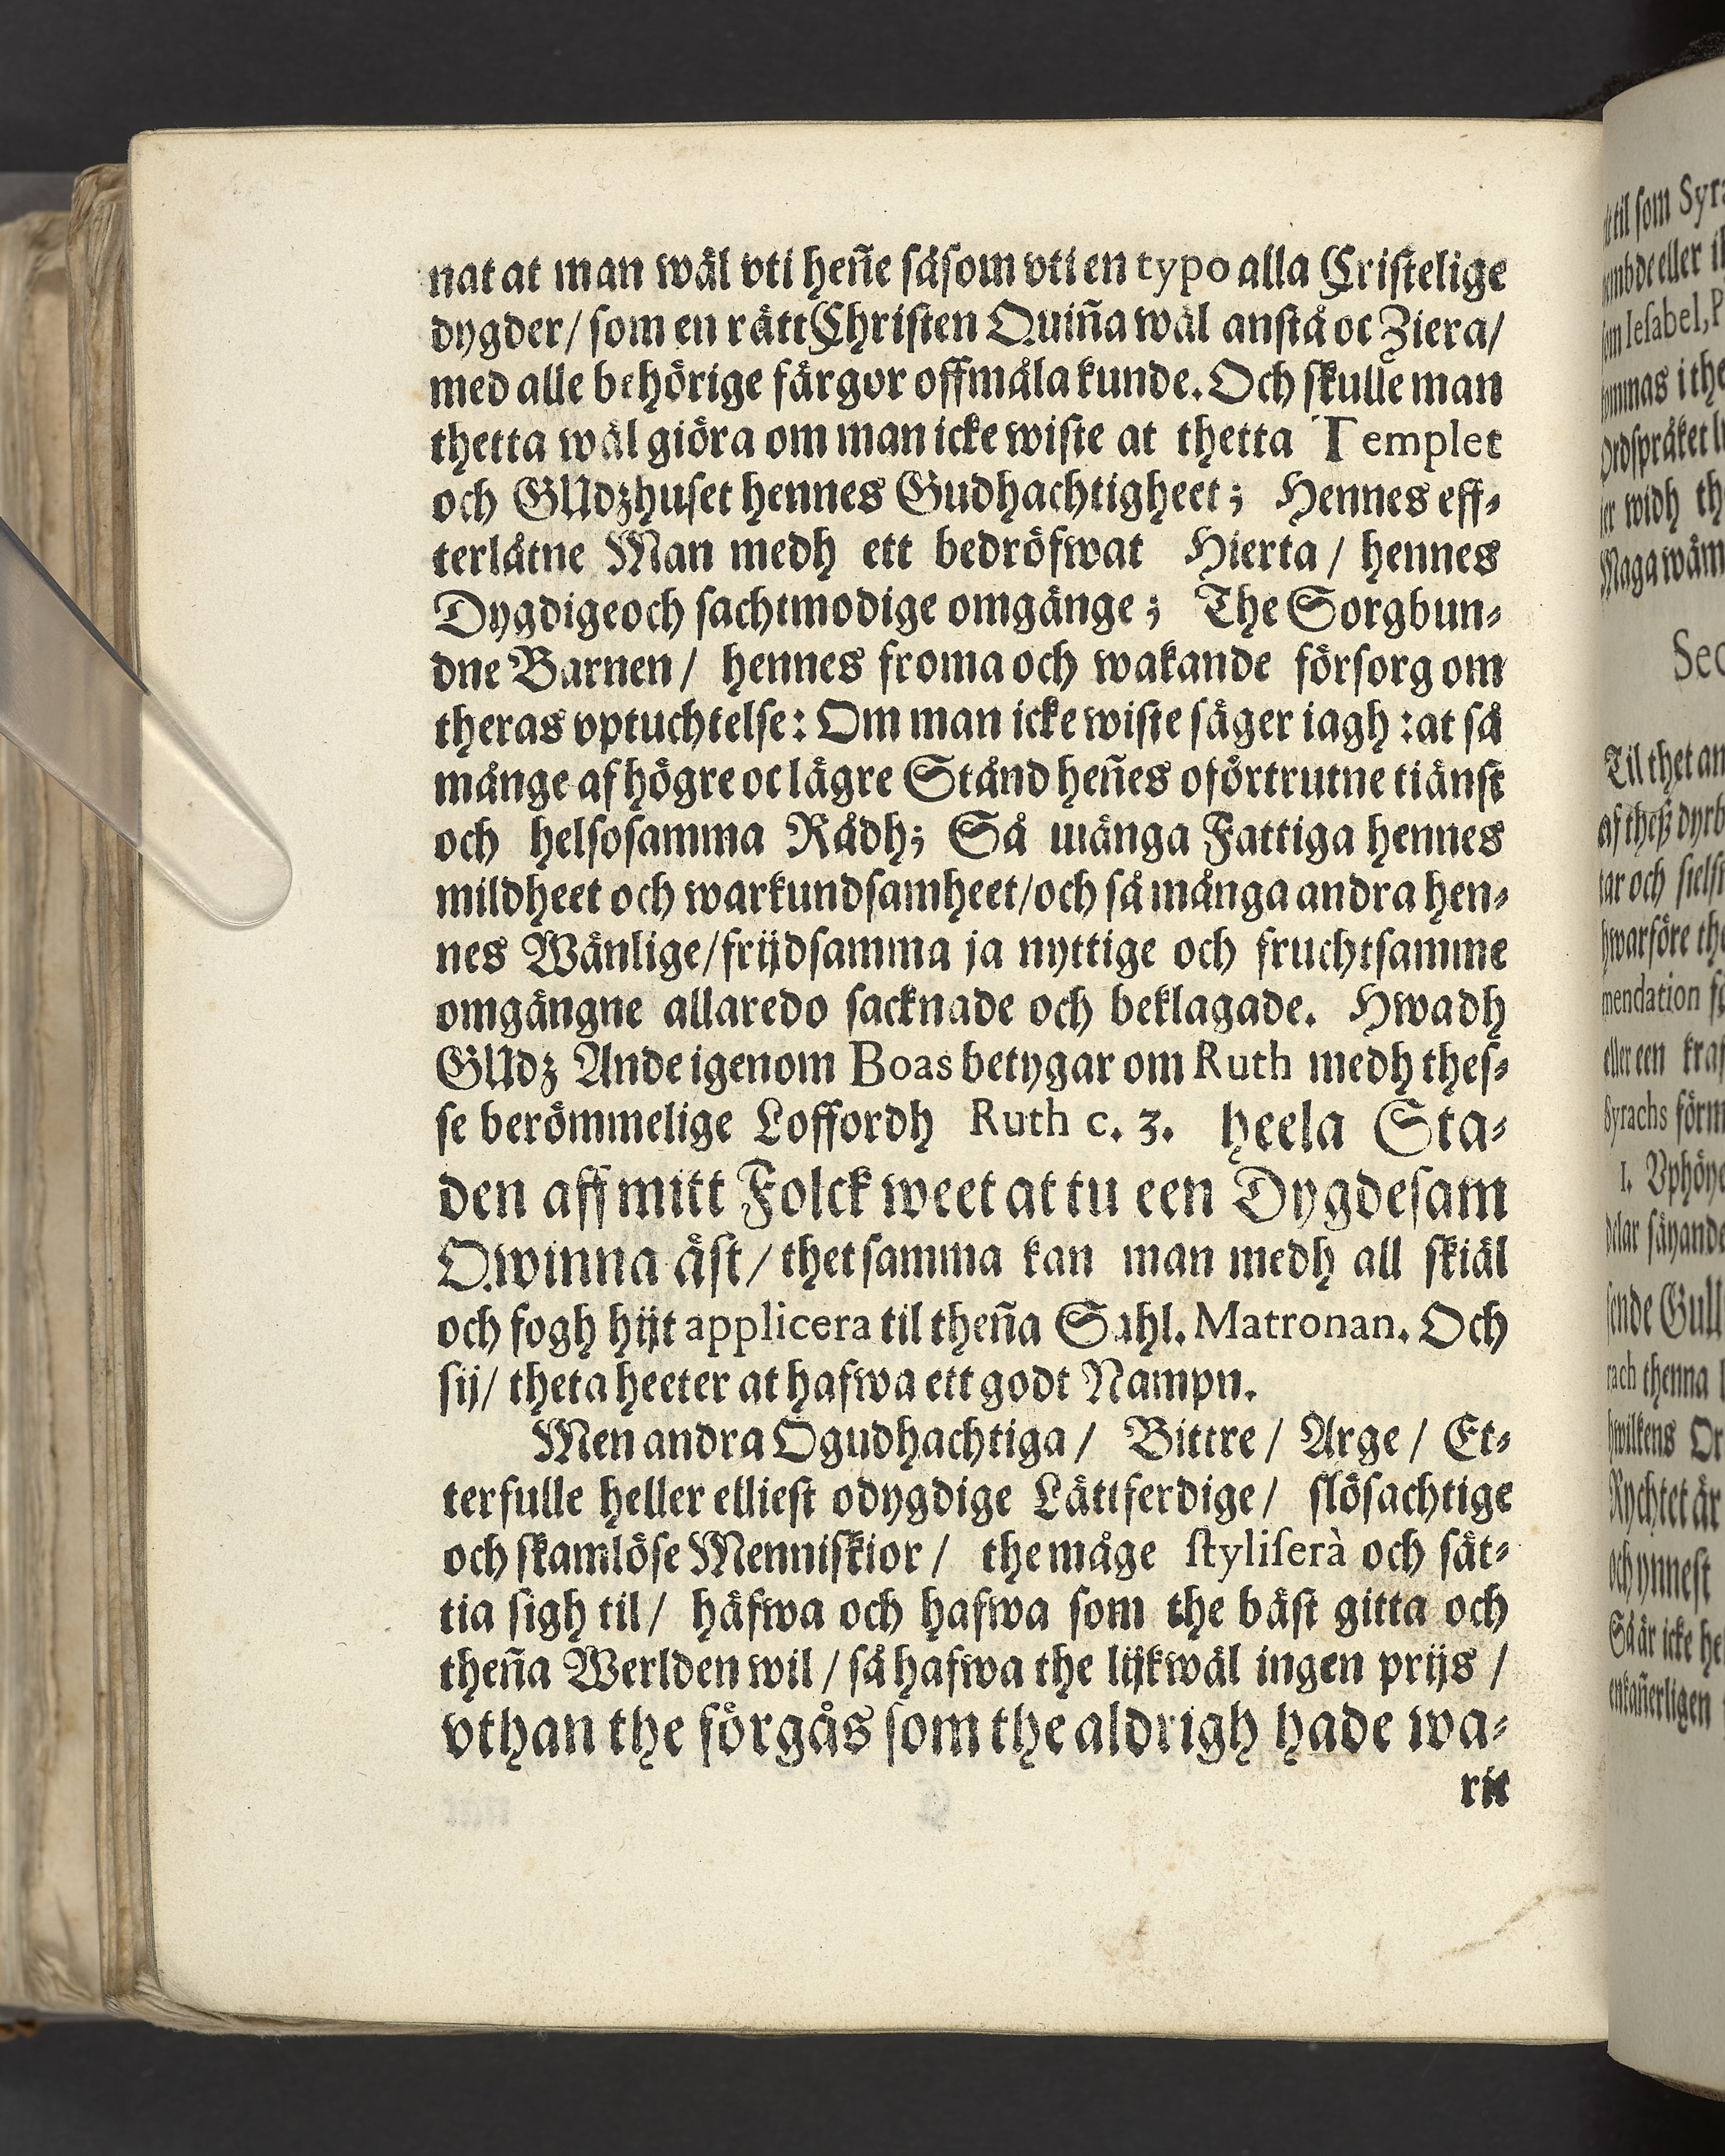 nat at man wäl vti heñe såsom vti en typo alla Cristelige
dygder/ som en rätt Christen Quiña wäl anstå oc Ziera/
med alle behörige färgor offmåla kunde. Och skulle man
thetta wäl giöra om man icke wiste at thetta Templet
och GUdzhuset hennes Gudhachtigheet; Hennes eff-
terlåtne Man medh ett bedröfwat Hierta / hennes
Dygdige och sachtmodige omgänge; The Sorgbun-
dne Barnen / hennes froma och wakande försorg om
theras vptuchtelse: Om man icke wiste säger iagh: at så
månge af högre oc lägre Stånd heñes oförtrutne tiänst
och helsosamma Rådh; Så många Fattiga hennes
mildheet och warkundsamheet/ och så många andra hen-
nes Wänlige/ frijdsamma ja nyttige och fruchtsamme
omgängne allaredo sacknade och beklagade. Hwadh
GUdz Ande igenom Boas betygar om Ruth medh thes-
se berömmelige Loffordh Ruth c. 3. heela Sta-
den aff mitt Folck weet at tu een Dygdesam
Qwinna äst/ thet samma kan man medh all skiäl
och fogh hijt applicera til theña Sahl. Matronan. Och
sij/ theta heeter at hafwa ett godt Nampn.
Men andra Ogudhachtiga / Bittre / Arge / Et-
terfulle heller elliest odygdige Lättferdige / slösachtige
och skamlöse Menniskior / the måge stylisera och sät-
tia sigh til / häfwa och hafwa som the bäst gitta och
theña Werlden wil / så hafwa the lijkwäl ingen prijs /
vthan the förgås som the aldrigh hade wa-
rit
til som Syra
eller
som Iesabel, P
i the
Ordspråket
widh th
Sec
Til thet an
af theß dyrb
tar och sielf
hwarföre the
mendation
eller een kraf
Syrachs förm
I. Vphöye
delar säyande
Gull
rach thenna
hwilkens Or
Rychtet är
och ynnest
Så är icke he